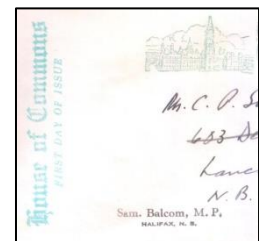 House of Commons
FIRST DAY OF ISSUE
M. C. P.
633
N. B.
Sam. Balcom, M. P.
HALIFAX, N. S.